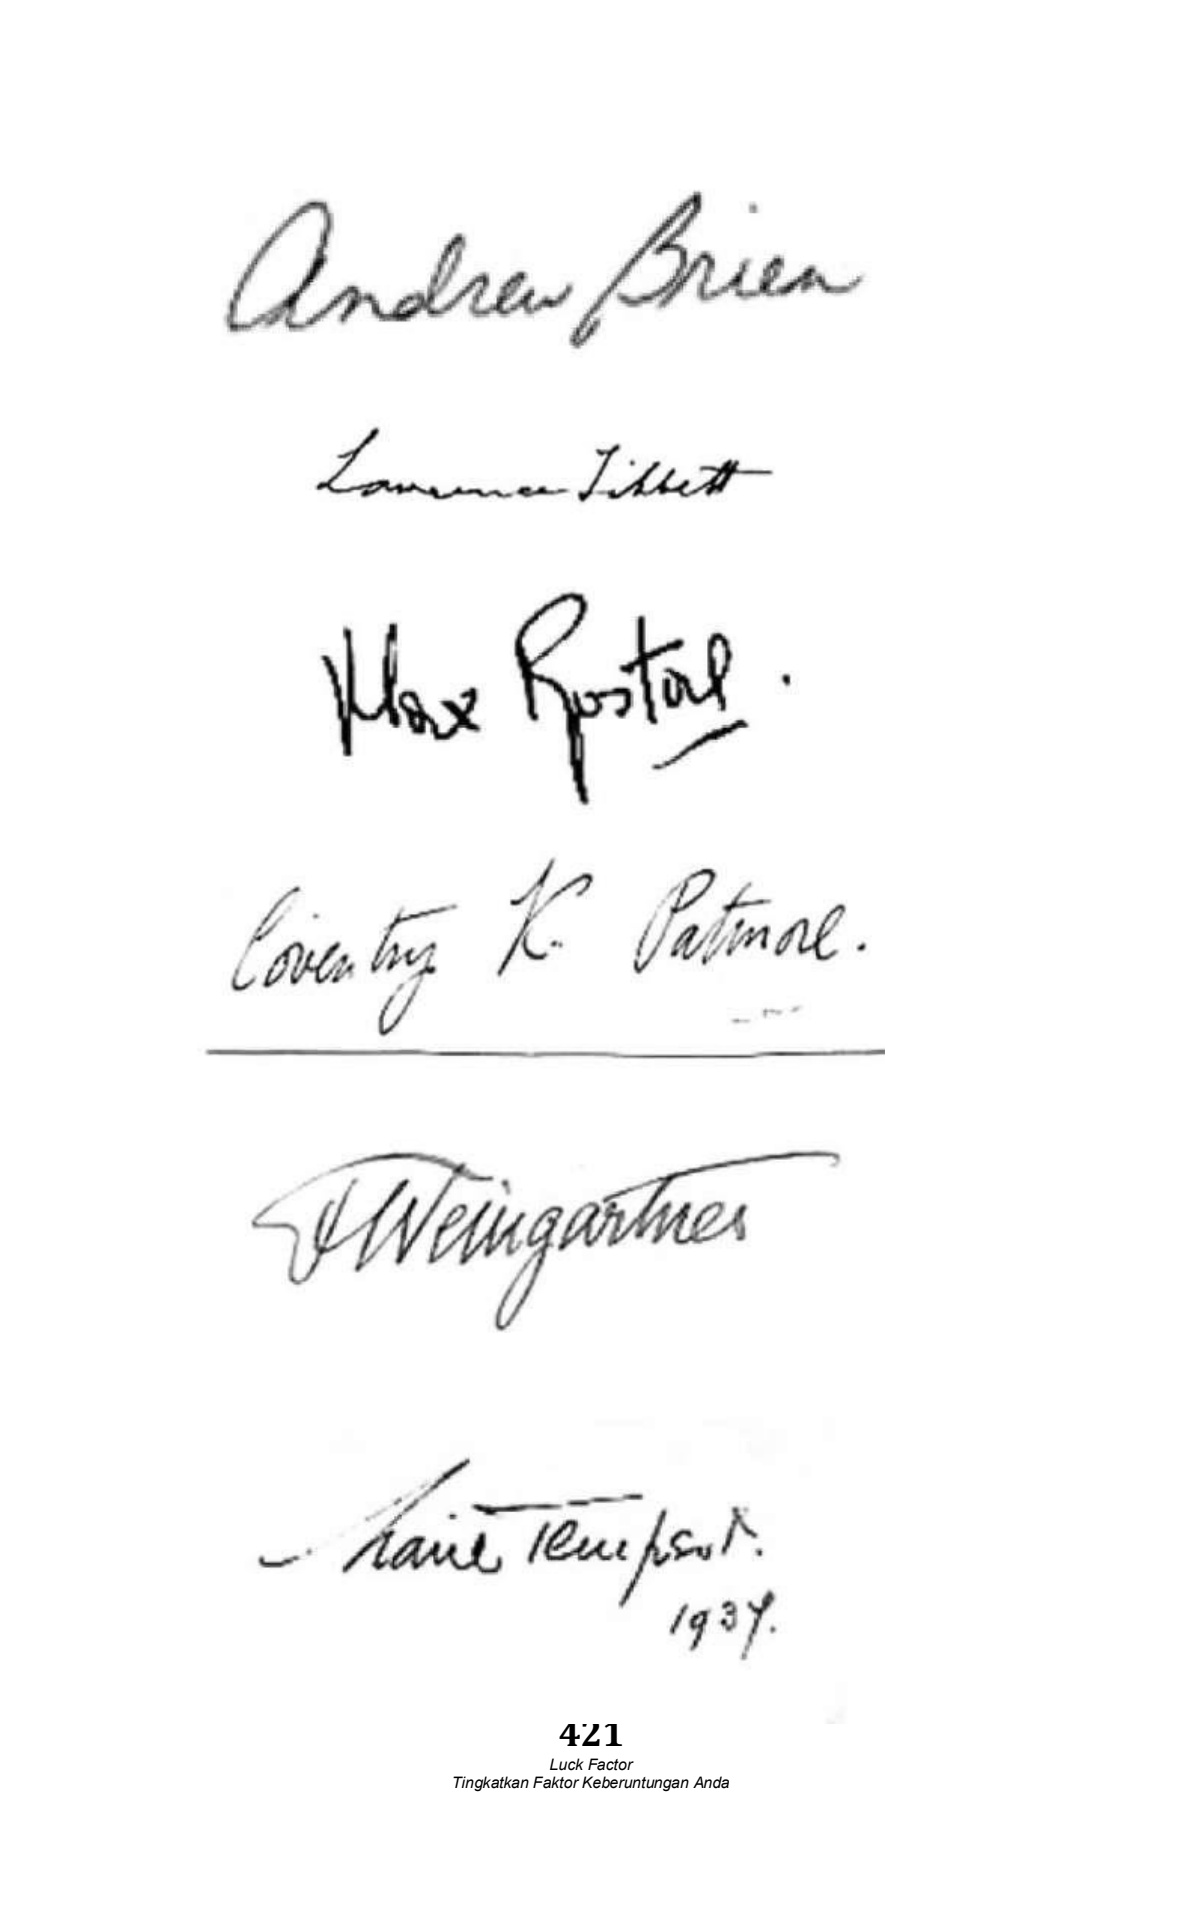 Andrew Brien
Lawrence Tibbett
Max Rostal.
Coventry K. Patmore.
F Weingartner
Marie Tempest.
1937.
421
Luck Factor
Tingkatkan Faktor Keberuntungan Anda